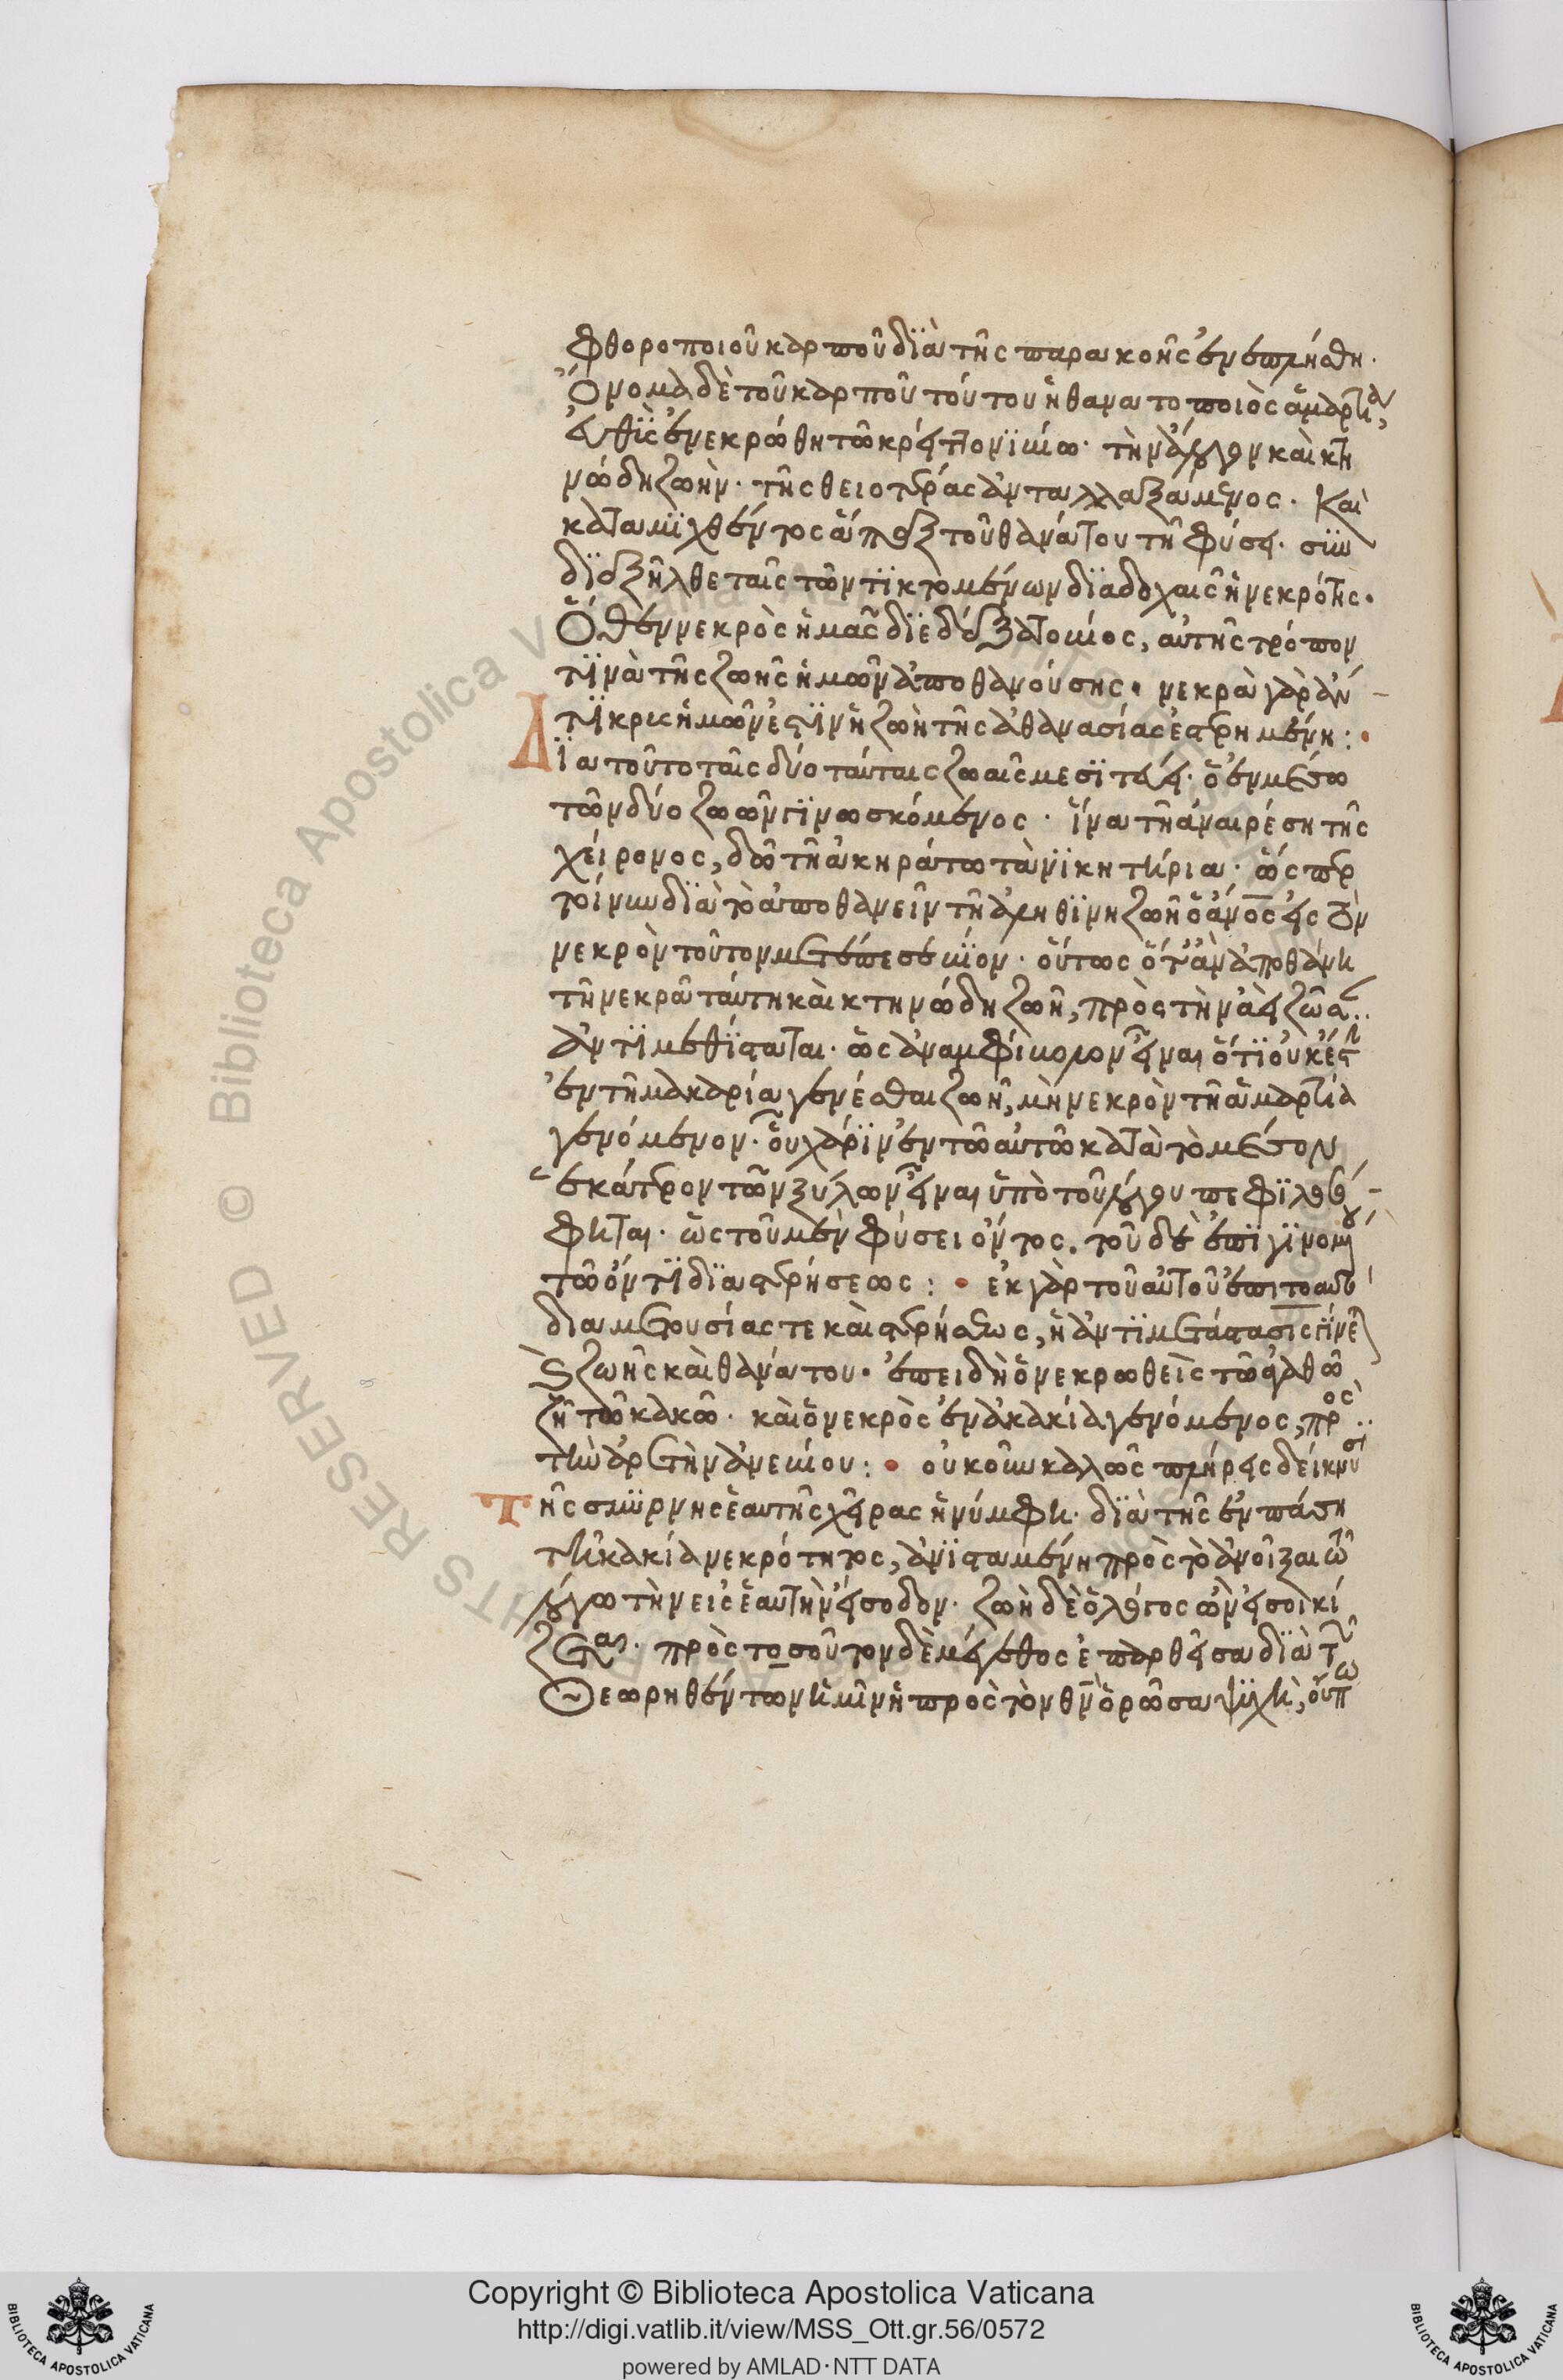 φθοροποιοῦ καρποῦ διὰ τῆς παρακοῆς ἐνεπλήσθη.
Ὄνομα δὲ τοῦ καρποῦ τούτου ἡ θανατοποιὸς ἁμαρτία,
εὐθὺς ἐνεκρώθη τῷ κρείττονι βίῳ· τὴν ἄλογον καὶ κτη
νώδη ζωὴν· τῆς θειοτέρας ἀνταλλαξάμενος. Καὶ
καταμιχθέντος ἅπαξ τοῦ θανάτου τῇ φύσει· συν
διεξῆλθε ταῖς τῶν τικτομένων διαδοχαῖς ἡ νεκρότης.
Ὅθεν νεκρὸς ἡμᾶς διεδέξατο βίος, αὐτῆς τρόπον
τινὰ τῆς ζωῆς ἡμῶν ἀποθανούσης. νεκρὰ γὰρ ἄν
τικρυς ἡμῶν ἐστιν ἡ ζωὴ τῆς ἀθανασίας ἐστερημένη:
Διατοῦτο ταῖς δύο ταύταις ζωαῖς μεσιτεύει· ὁ ἐν μέσῳ
τῶν δύο ζωῶν γινωσκόμενος· ἵνα τῇ ἀναιρέσῃ τῆς
χείρονος, δῷ τῇ ἀκηράτῳ τὰ νικητήρια· ὥσπερ
τοίνυν διὰ τὸ ἀποθανεῖν τῇ ἀληθινῇ ζωῇ ὁ ἄνος εἰς τὸν
νεκρὸν τοῦτον μετέπεσε βίον· οὕτως ὅταν ἀποθάνῃ
τῇ νεκρᾷ ταύτῃ καὶ κτηνώδη ζωῇ, πρὸς τὴν ἀεὶ ζῶσαν
ἀντιμεθίσταται· ὡς ἀναμφίβολον εἶναι ὅτι οὐκ ἔστι
ἐν τῇ μακαρίᾳ γενέσθαι ζωῇ, μὴ νεκρὸν τῇ ἁμαρτίᾳ
γενόμενον. οὗ χάριν ἐν τῷ αὐτῷ κατὰ τὸ μέσον
ἑκάτερον τῶν ξύλων εἶναι ὑπὸ τοῦ λόγου πεφιλοσό
φηται· ὡς τοῦ μὲν φύσει ὄντος. τοῦ δὲ ἐπιγινομένου
τῷ ὄντι διὰ στερήσεως: ἐκ γὰρ τοῦ αὐτοῦ ἐπὶ τὸ αὐτὸ
διαμετουσίας τε καὶ στερήσεως, ἡ ἀντιμετάστασις γίνεται
ζωῆς καὶ θανάτου. ἐπειδὴ ὁ νεκρωθεὶς τῷ ἀγαθῷ
ζῇ τῷ κακῷ· καὶ ὁ νεκρὸς ἐν ἀκακίᾳ γενόμενος, πρὸς
τὴν ἀρετὴν ἀνεβίου: οὐκοῦν καλῶς πλήρεις δείκνυσι
Τῆς σμύρνης ἑαυτῆς χεῖρας ἡ νύμφη· διὰ τῆς ἐν πάσῃ
τῇ κακίᾳ νεκρότητος, ἀνισταμένη πρὸς τὸ ἀνοῖξαι τῷ
λόγῳ τὴν εἰς ἑαυτὴν εἴσοδον. ζωὴ δὲ ὁ λόγος ὃν εἰσοικί
ζεται. πρὸς τοσοῦτον δὲ μέγεθος ἐπαρθεῖσα διὰ τῶν
Θεωρηθέντων ἡμῖν ἡ πρὸς τὸν θν ὁρῶσα ψυχὴ, οὔπω